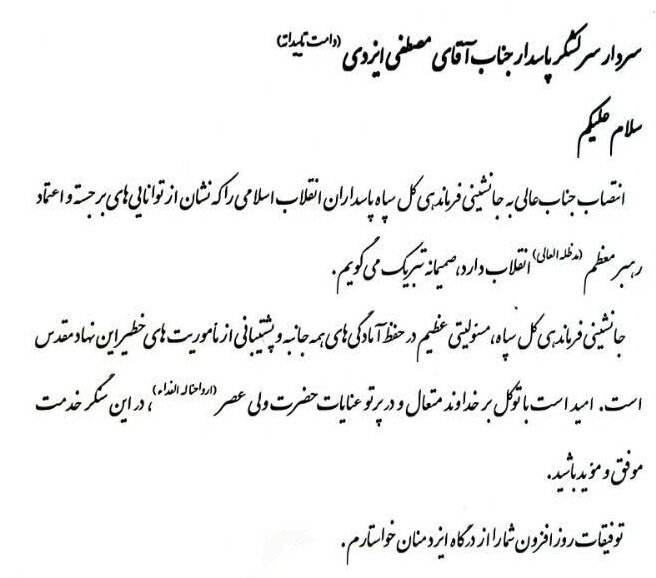 سردار سرلشکر پاسدار جناب آقای مصطفی ایزدی (دامت تاییداته)
سلام علیکم
انتصاب جناب عالی به جانشینی فرماندهی کل سپاه پاسداران انقلاب اسلامی را که نشان از توانایی های برجسته و اعتماد
رهبر معظم (مدظله العالی) انقلاب دارد، صمیمانه تبریک می گویم.
جانشینی فرماندهی کل سپاه، مسئولیتی عظیم در حفظ آمادگی های همه جانبه و پشتیبانی از مأموریت های خطیر این نهاد مقدس
است. امید است با توکل بر خداوند متعال و در پرتو عنایات حضرت ولی عصر (ارواحنا له الفداء)، در این سنگر خدمت
موفق و مؤید باشید.
توفیقات روز افزون شما را از درگاه ایزد منان خواستارم.